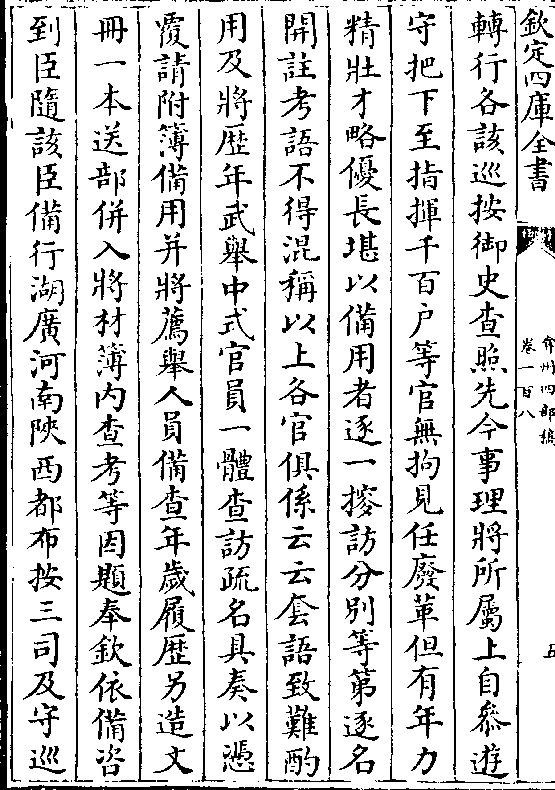 欽定四庫全書
弇州四部稿
卷一百八
五
轉行各該巡按御史查照先今事理將所屬上自叅遊
守把下至指揮千百户等官無拘見任廢革但有年力
精壯才略優長堪以備用者逐一搜訪分别等第逐名
開註考語不得混稱以上各官俱係云云套語致難酌
用及將歴年武舉中式官員一體查訪疏名具奏以憑
覆請附簿備用并將薦舉人員備查年歲履歴另造文
冊一本送部併入將材簿内查考等因題奉欽依備咨
到臣隨該臣備行湖廣河南陜西都布按三司及守巡